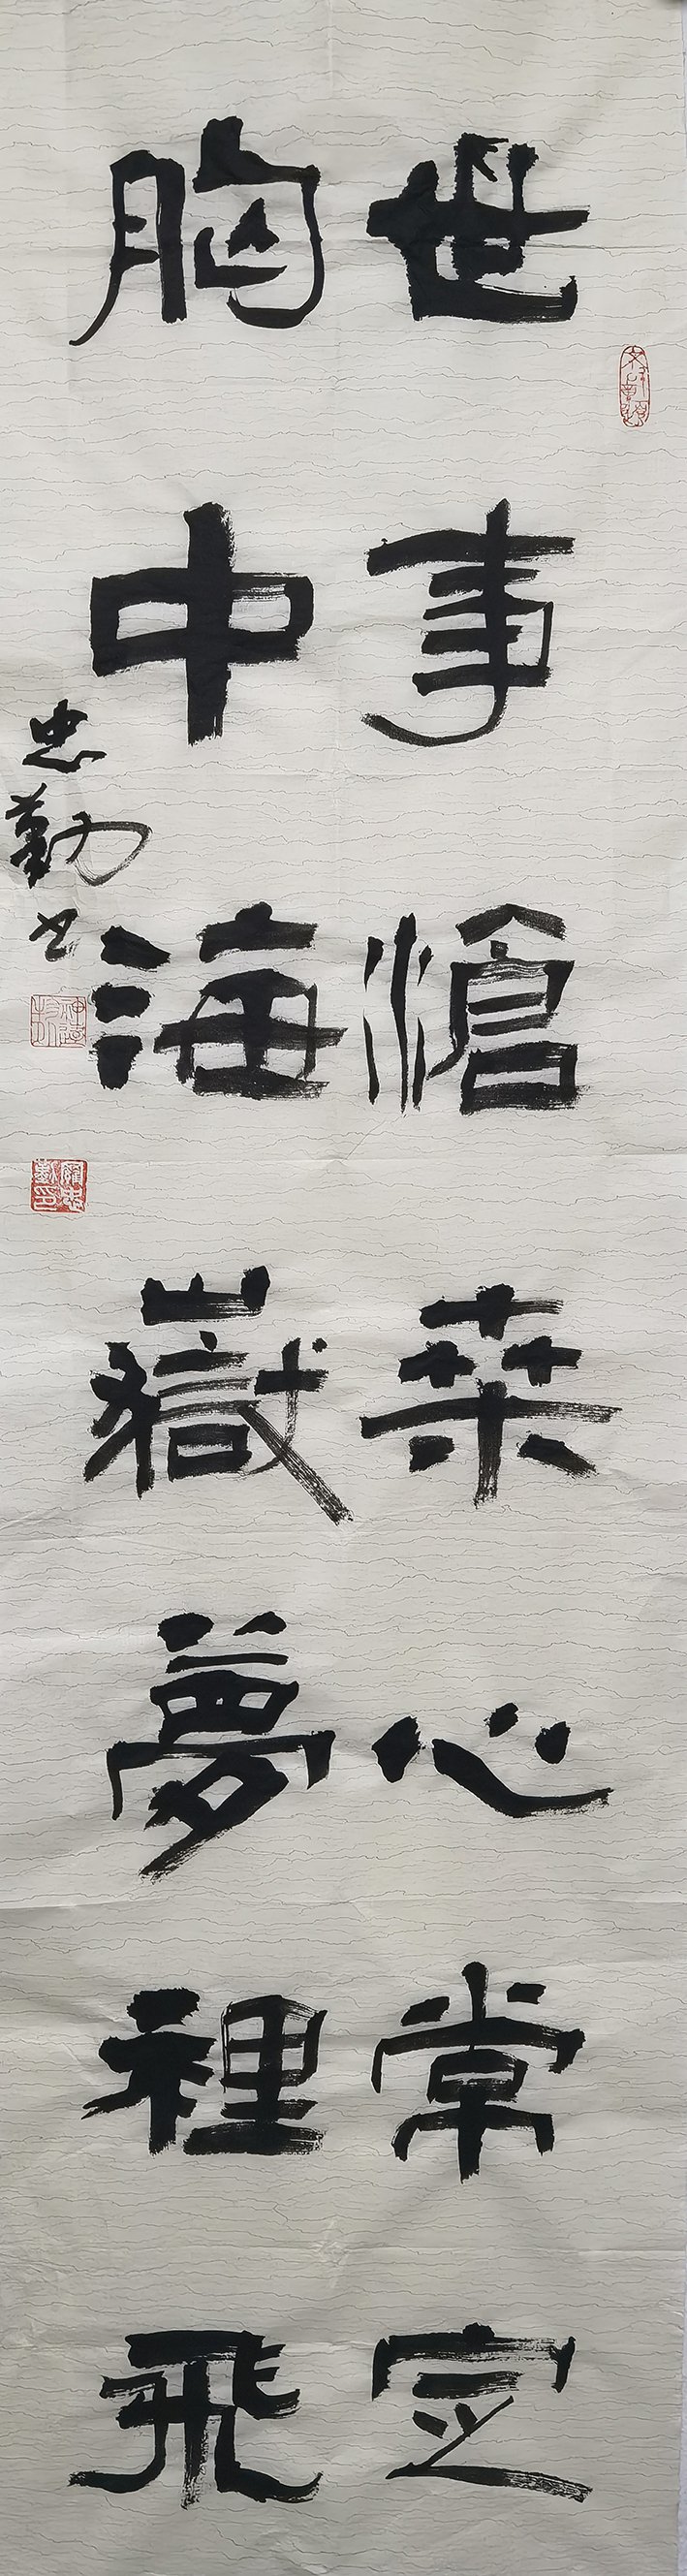 世事滄桑心常定
胸中海嶽夢裡飛
忠勤书